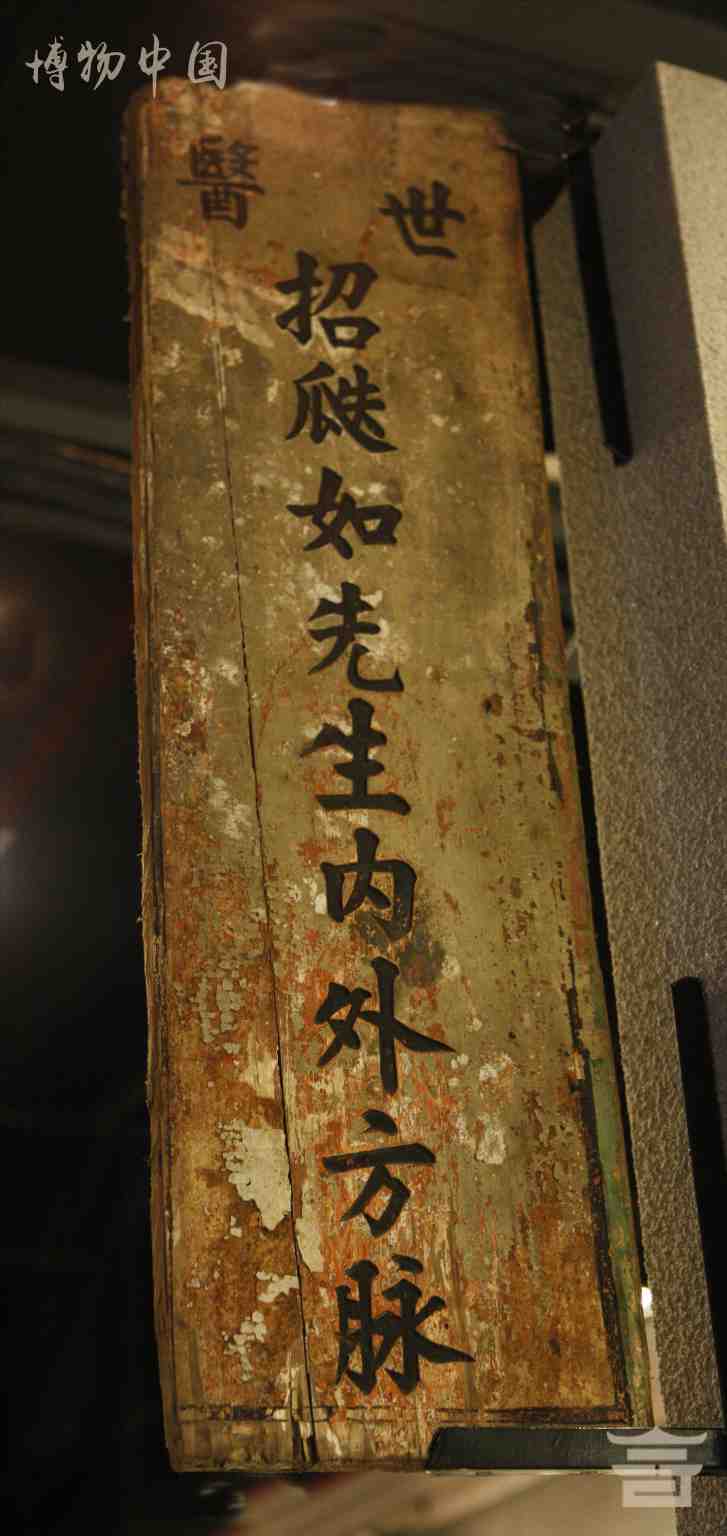 博物中国
世醫
招瓞如先生内外方脉